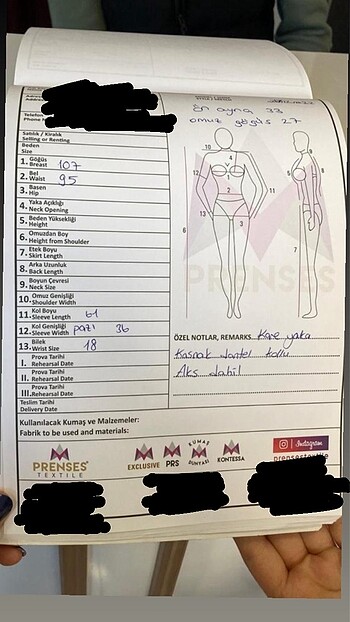 Ön ayna 33
omuz göğüs 27
Telefon
Phone
Satılık / Kiralık
Selling or Renting
Beden
Size
1. Göğüs
Breast 107
2. Bel
Waist 95
3. Basen
Hip
4. Yaka Açıklığı
Neck Opening
5. Beden Yüksekliği
Height
6. Omuzdan Boy
Height from Shoulder
7. Etek Boyu
Skirt Length
8. Arka Uzunluk
Back Length
9. Boyun Çevresi
Neck Size
10. Omuz Genişliği
Shoulder Width
11. Kol Boyu
Sleeve Length 61
12. Kol Genişliği
Sleeve Width pazı 36
13. Bilek
Wrist Size 18
I. Prova Tarihi
Rehearsal Date
II. Prova Tarihi
Rehearsal Date
III. Prova Tarihi
Rehearsal Date
Teslim Tarihi
Delivery Date
10
4
12
11
1
2
13
3
7
6
9
5
8
PRENSES
ÖZEL NOTLAR, REMARKS Kare yaka
Kasnak dantel kollu
Aks dahil
Kullanılacak Kumaş ve Malzemeler:
Fabrik to be used and materials:
PRENSES
TEXTILE
EXCLUSIVE
PRS
KUMAŞ
DÜNYASI
KONTESSA
Instagram